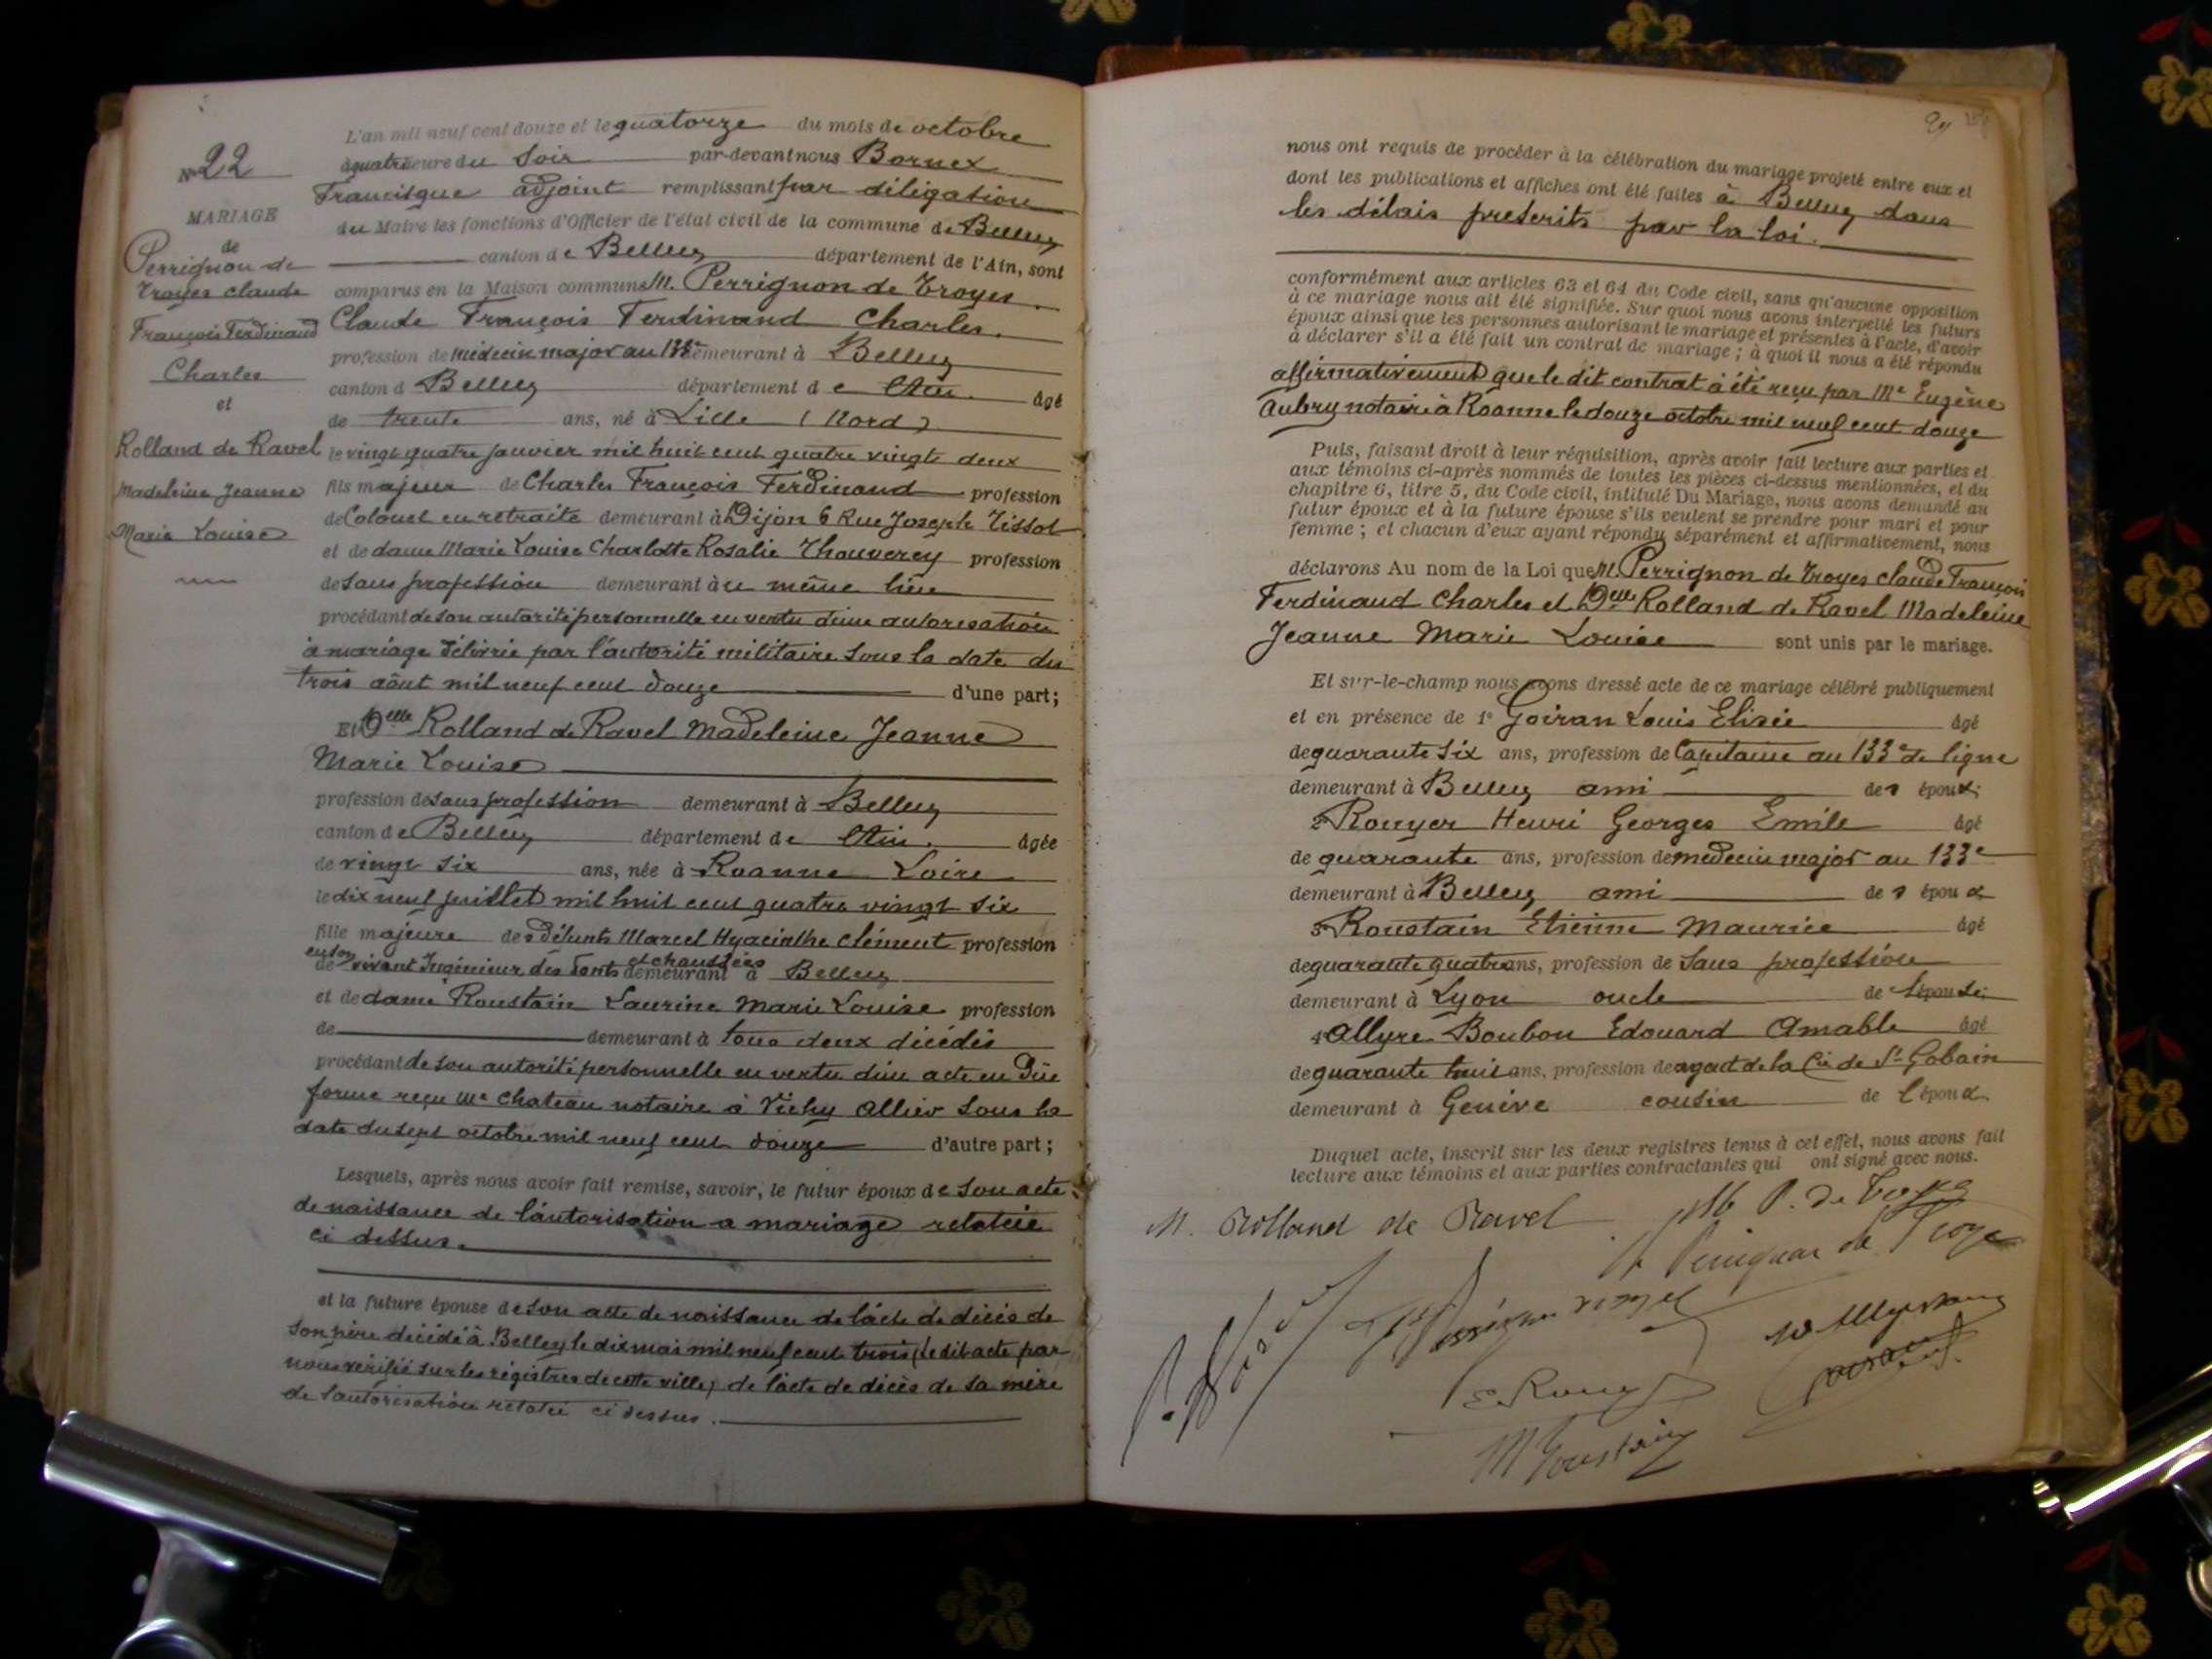 N° 22
MARIAGE
de
Perrignon de
Troyes claude
François Ferdinand
Charles
et
Rolland de Ravel
Madeleine Jeanne
Marie Louise
L'an mil neuf cent douze et le quatorze du mois de octobre
à quatre heure du soir par-devant nous Bornex
Francisque adjoint remplissant par délégation
du Maire les fonctions d'Officier de l'état civil de la commune de Belley
canton de Belley département de l'Ain, sont
comparus en la Maison commune M. Perrignon de Troyes
Claude François Ferdinand Charles.
profession de médecin major au 133e demeurant à Belley
canton d Belley département de l'Ain. âgé
de trente ans, né à Lille (Nord)
le vingt quatre janvier mil huit cent quatre vingt deux
fils majeur de Charles François Ferdinand profession
de Colonel en retraite demeurant à Dijon 6 Rue Joseph Tissot
et de dame Marie Louise Charlotte Rosalie Thouverey profession
de sans profession demeurant à ce même lieu
procédant de son autorité personnelle en vertu d'une autorisation
à mariage délivrée par l'autorité militaire sous la date du
trois août mil neuf cent douze d'une part;
Et Delle Rolland de Ravel Madeleine Jeanne
Marie Louise
profession de sans profession demeurant à Belley
canton de Belley département de l'Ain. âgée
de vingt six ans, née à Roanne Loire
le dix neuf juillet mil huit cent quatre vingt six
fille majeure de défunts Marcel Hyacinthe Clément profession
en son et chaussées
de vivant Ingénieur des Ponts demeurant à Belley
et de dame Roustain Laurine Marie Louise profession
de demeurant à tous deux décédés
procédant de son autorité personnelle en vertu d'un acte en due
forme reçu Me Chateau notaire à Vichy Allier sous la
date du sept octobre mil neuf cent douze d'autre part;
Lesquels, après nous avoir fait remise, savoir, le futur époux de son acte
de naissance de l'autorisation a mariage relatée
ci dessus.
et la future épouse de son acte de naissance de l'acte de décès de
son père décédé à Belley le dix mai mil neuf cent trois (ledit acte par
nous vérifié sur les régistres de cette ville) de l'acte de décès de sa mère
de l'autorisation relatée ci dessus.
29
nous ont requis de procéder à la célébration du mariage projeté entre eux et
dont les publications et affiches ont été faites à Belley dans
les délais prescrits par la loi.
conformément aux articles 63 et 64 du Code civil, sans qu'aucune opposition
à ce mariage nous ait été signifiée. Sur quoi nous avons interpellé les futurs
époux ainsi que les personnes autorisant le mariage et présentes à l'acte, d'avoir
à déclarer s'il a été fait un contrat de mariage; à quoi il nous a été répondu
affirmativement que le dit contrat à été reçu par Me Eugène
Aubry notaire à Roanne le douze octobre mil neuf cent douze
Puis, faisant droit à leur réquisition, après avoir fait lecture aux parties et
aux témoins ci-après nommés de toutes les pièces ci-dessus mentionnées, et du
chapitre 6, titre 5, du Code civil, intitulé Du Mariage, nous avons demandé au
futur époux et à la future épouse s'ils veulent se prendre pour mari et pour
femme; et chacun d'eux ayant répondu séparément et affirmativement, nous
déclarons Au nom de la Loi que M. Perrignon de Troyes claude François
Ferdinand Charles et Delle Rolland de Ravel Madeleine
Jeanne Marie Louise sont unis par le mariage.
Et sur-le-champ nous avons dressé acte de ce mariage célébré publiquement
et en présence de 1° Goiran Louis Elisée âgé
de quarante six ans, profession de Capitaine au 133e de ligne
demeurant à Belley ami des époux;
2° Rouyer Henri Georges Emile âgé
de quarante ans, profession de médecin major au 133e
demeurant à Belley ami des époux
3° Roustain Etienne Maurice âgé
de quarante quatre ans, profession de sans profession
demeurant à Lyon oncle de l'épouse;
4° Allyre Boubon Edouard Amable âgé
de quarante huit ans, profession de agent de la Cie de St Gobain
demeurant à Genève cousin de l'époux.
Duquel acte, inscrit sur les deux registres tenus à cet effet, nous avons fait
lecture aux témoins et aux parties contractantes qui ont signé avec nous.
M. Rolland de Ravel P. de Troyes
E. Rouyer
M Roustain